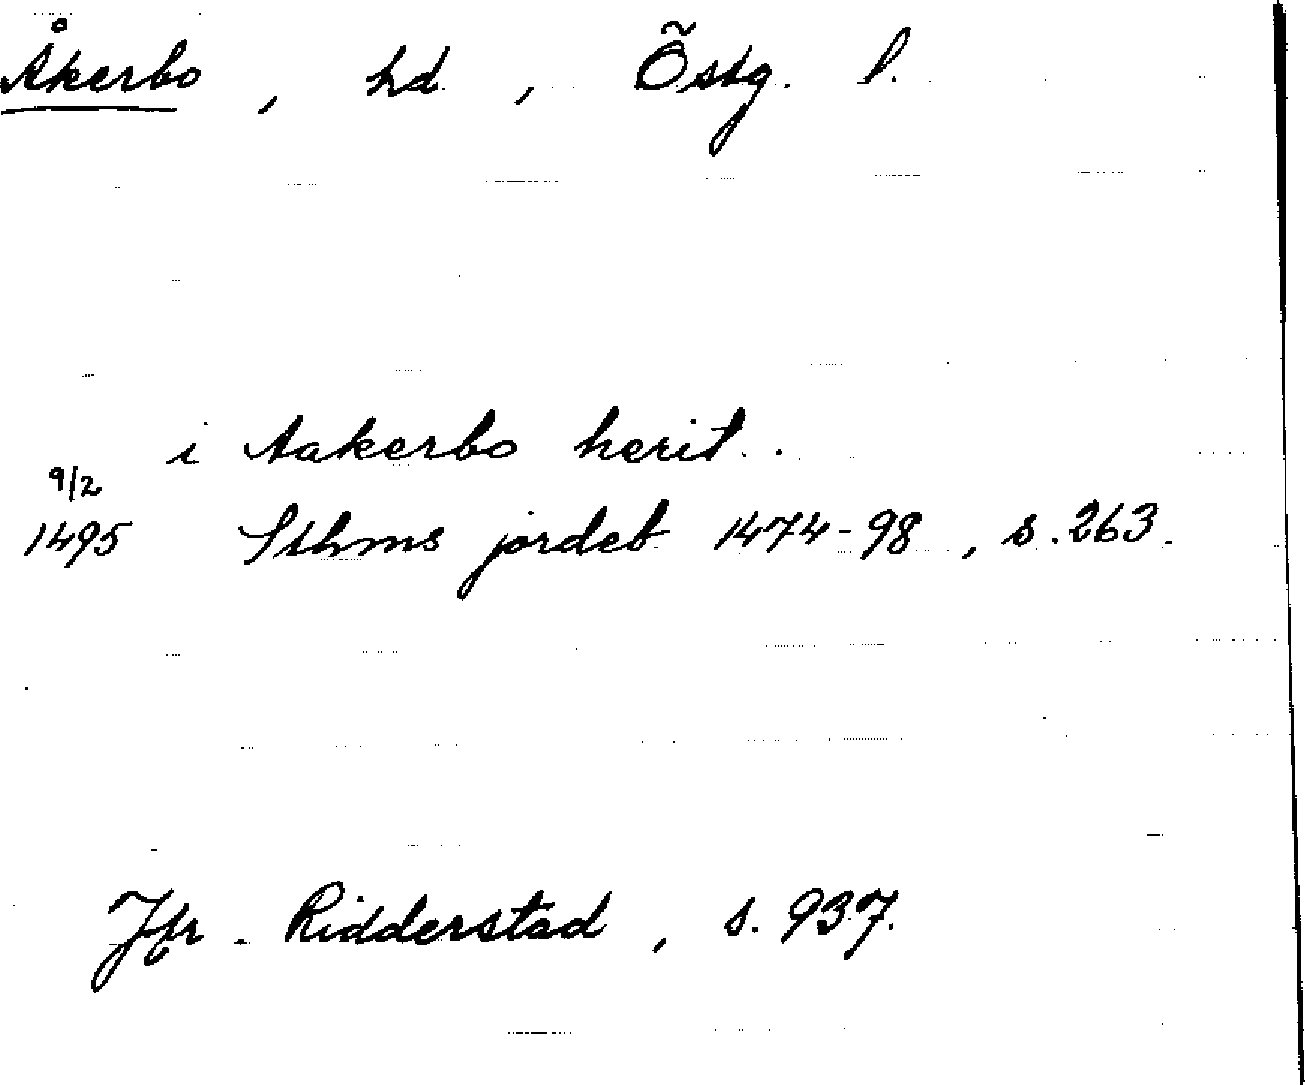 Åkerbo, hd, Östg. l.
i Aakerbo herit..
9/2
1495 Sthms jordeb 1474-98, s. 263.
Jfr. Ridderstad, s. 937.